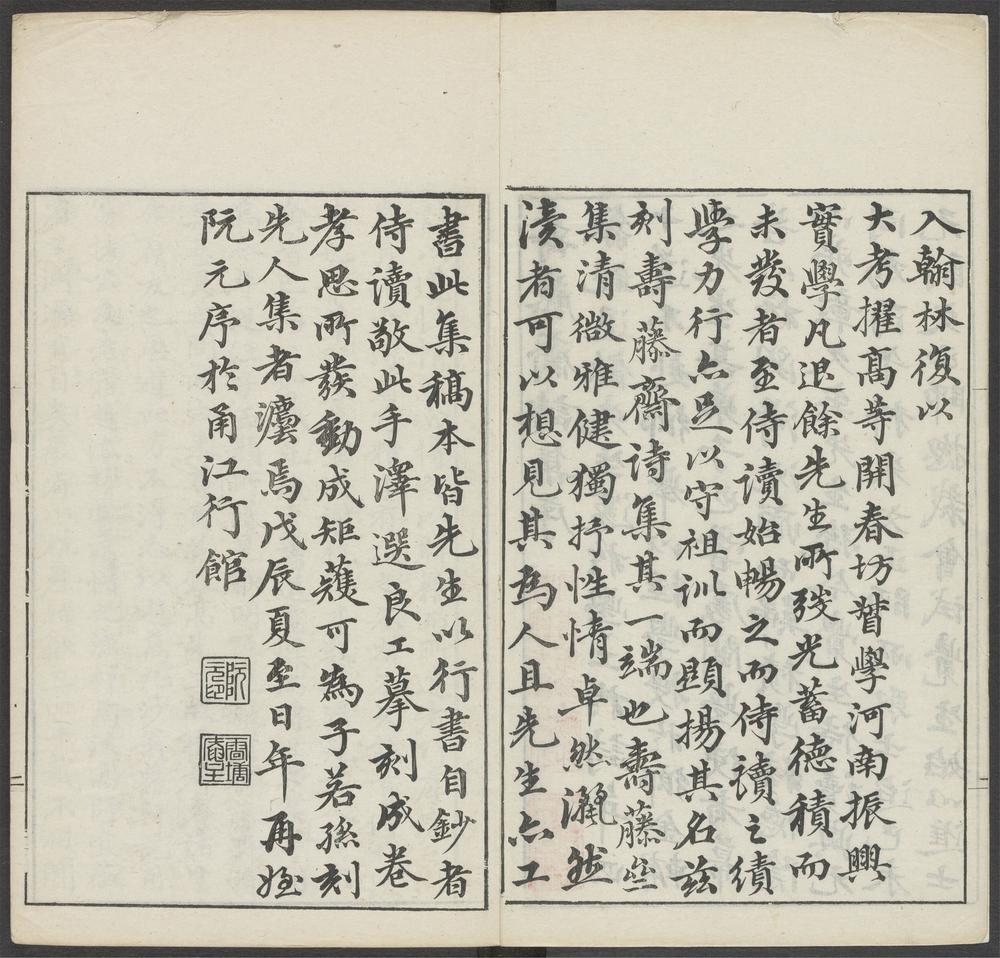 入翰林復以
大考擢高等開春坊督學河南振興
實學凡退餘先生所發光蓄德積而
未發者至侍讀始暢之而侍讀之績
學力行亦足以守祖訓而顯揚其名茲
刻壽藤齋詩集其一端也壽藤齋
集清微雅健獨抒性情卓然灑然
讀者可以想見其為人且先生亦工
書此集稿本皆先生以行書自鈔者
侍讀敬此手澤選良工摹刻成卷
孝思所發動成矩矱可為子若孫刻
先人集者灋焉戊辰夏至日年再姪
阮元序於甬江行館
阮元印